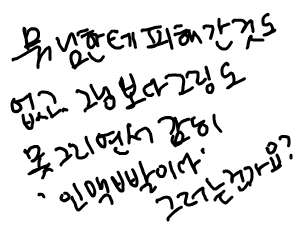 뭐 님한테 피해간것도
없고 그냥 보다 그림도
못그리면서 감히
'인맥빨이다'
그러는건가요?